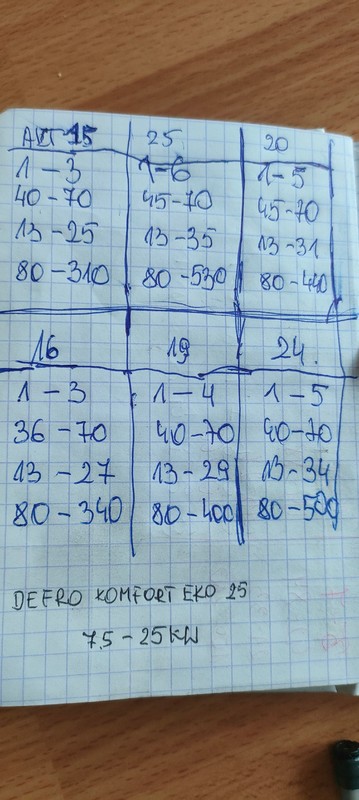 AKT 15 25 20
1-3 1-6 1-5
40-70 45-70 45-70
13-25 13-35 13-31
80-310 80-530 80-440
16 19 24.
1-3 1-4 1-5
36-70 40-70 40-70
13-27 13-29 13-34
80-340 80-400 80-500
DEFRO KOMFORT EKO 25
7,5-25KW